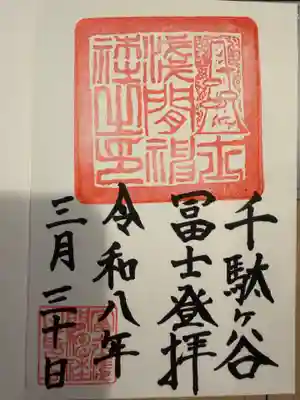 淺間神
社之印
千駄ヶ谷
冨士登拝
令和八年
三月三十日